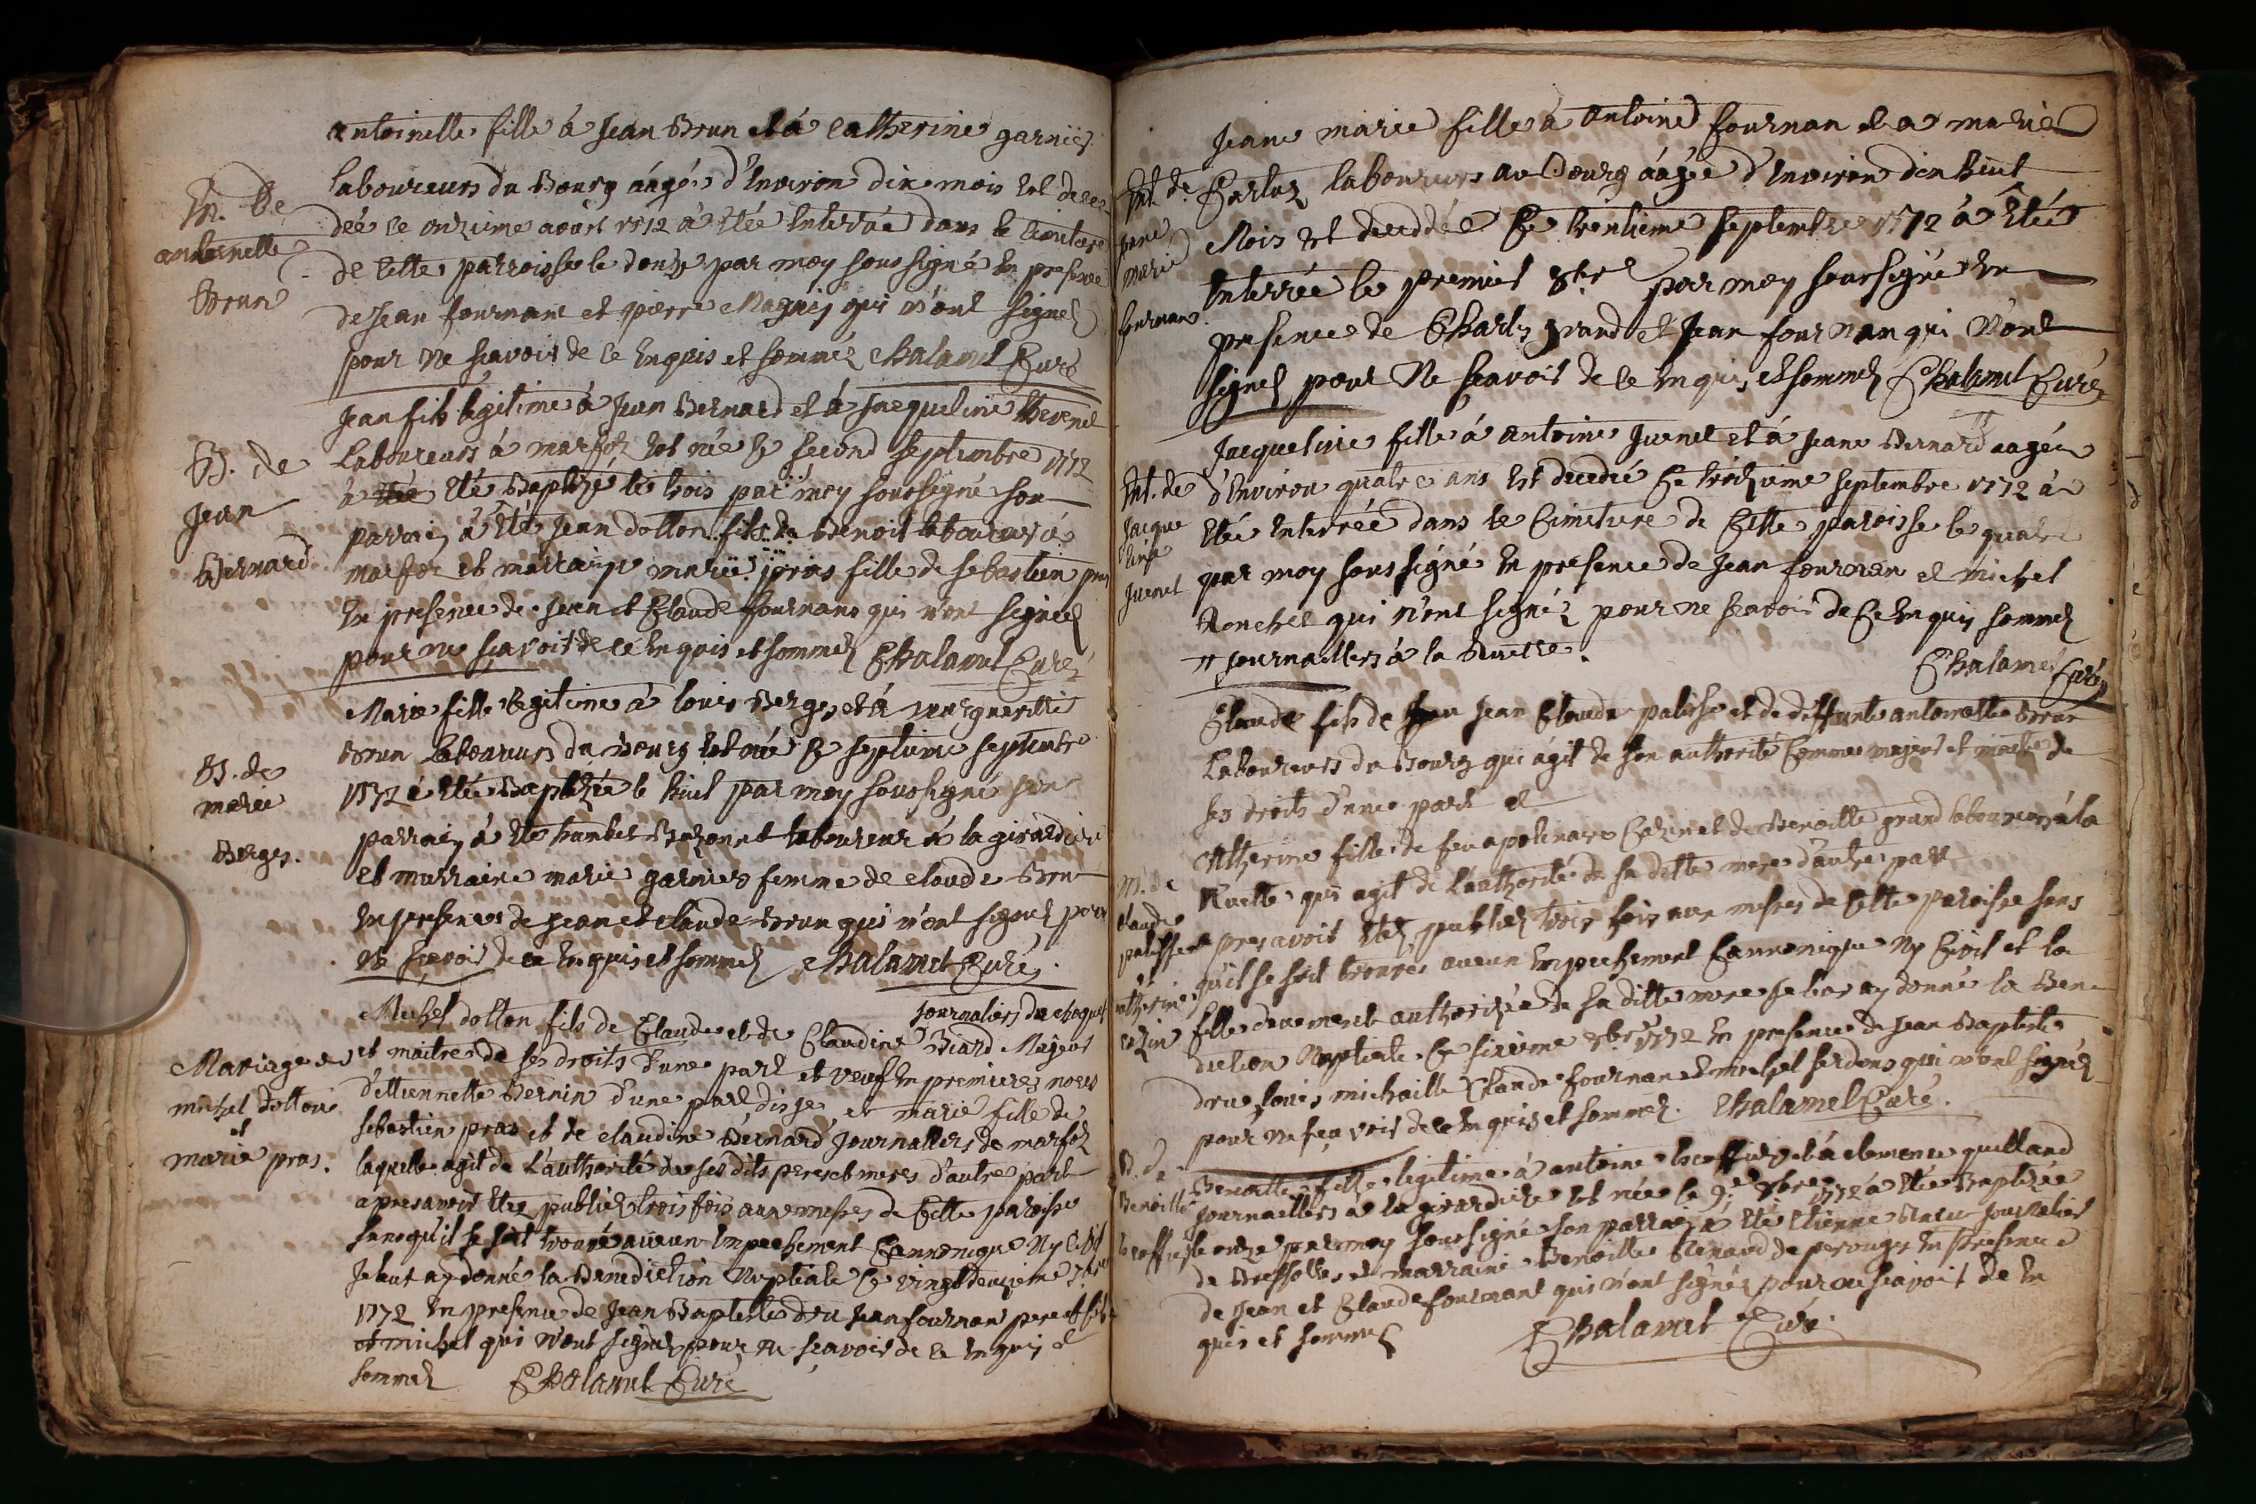 antoinelle fille à Jean Brun et à Catherine garnier
laboureurs du Bourg aagée d'Environ dix mois Est dece
En. de
antoinelle
Brun
dée le onzieme aoust 1772 à Etée Enterrée dans le Cimetiere
de Cette parroisse le douze par moy soussigné En presence
de Jean fournant et pierre Magnin qui n'ont signez
pour ne scavoir de ce Enquis et sommez Chalamel Curé
Jean fils légitime à Jean Bernard et à Jacqueline thevenet
B. de
Jean
Bernard
Laboureurs à marfoz Est née le second septembre 1772
à Eté Baptizé le trois par moy soussigné son
parrain à Eté Jean dotton fils de Benoit laboureur à
marfoz et marraine marie pras fille de sebastien pras
En presence de Jean et Claude fournans qui n'ont signéz
pour ne sçavoir de cé Enquis et sommez Chalamel Curé
Marie fille légitime à louis Berges et à margueritte
B. de
marie
Berges.
Brun Laboureurs du Bourg Est née le septieme septembre
1772 à Etée Baptizée le huit par moy soussigné son
parrain à Eté humbert laboureur à la girardiere
et marraine marie garnier femme de claude Brun
En presence de Jean et claude Brun qui n'ont signez pour
ne scavoir de ce Enquis et sommez Chalamel Curé.
Mariage de
michel dotton
et
marie pras.
Michel dotton fils de Claude et de Claudine Biard Majeur
journaliers du
et maitre de ses droits d'une part et veuf En premieres noces
d'ettiennette Bernin d'une part disje et marie fille de
sebastien pras et de claudine Bernard Journalliers de marfoz
laquelle agit de l'authorité de ses dits pere et mere d'autre part
apres avoir Etez publiez trois fois aux messes de Cette paroisse
sans qu'il se soit trouvé aucun Empechement Cannonique Ny Civil
Je leur ay donné la Benediction Nuptiale Ce vingt deuxieme 7bre
1772 En presence de Jean Baptiste dru Jean fournan pere et fils
et michel qui n'ont signez pour ne scavoir de ce Enquis et
sommez Chalamel Curé
Jeane marie fille à antoine fournan et à marie
Ent. de
jeane
marie
fournan.
Carluz laboureurs au Bourg aagée d'Environ dix huit
Mois Est decedée Ce trentieme septembre 1772 à Etée
Enterrée le premier 8bre par moy soussigné En
presence de Charles grand et Jean fournan qui N'ont
signez pour Ne scavoir de ce Enquis et sommez Chalamel Curé
Jacqueline fille à antoine Juenet et à Jeane Bernard aagée
Ent. de
Jacque
line
Juenet
d'Environ quatre ans Est decedée Ce troizieme septembre 1772 à
Etée Enterrée dans le Cimetiere de Cette paroisse le quatre
par moy soussigné En presence de Jean fournan et michel
Ronchet qui n'ont signéz pour ne scavoir de Ce Enquis sommez
journalliers à la
Chalamel Curé
Claude fils de Jean Claude palisse et de deffunte antoinette Brun
Laboureurs du Bourg qui agit de son authorité Comme majeur et maitre de
ses droits d'une part et
Catherine fille de feu apolinaire Cazin et de Benoitte grand laboureurs à la
M. de
claude
palisse
et
catherine
cazin
Ruette qui agit de l'authorité de sa ditte mere d'autre part
apres avoir Etez publiez trois fois aux messes de Cette paroisse sans
qu'il se soit trouvés aucun Empechement Cannonique Ny Civil et la
fille duement authorizée de sa ditte mere Je leur ay donné la Bene
diction Nuptiale Ce sixieme 8bre 1772 En presence de Jean Baptiste
dru, louis michaille Claude fournan et michel qui n'ont signéz
pour ne scavoir de ce Enquis et sommez. Chalamel Curé.
B. de
Benoitte
Benoitte fille legitime à antoine et à clemence guilland
journalliers à la girardiere Est née le 9e 8bre 1772 à Etée Baptizée
le onze par moy soussigné son parrain à Eté Etienne journalier
de Bressolles et marraine Benoitte Renaud de perouges En presence
de Jean et Claude fournant qui n'ont signéz pour ne scavoir de En
quis et sommez Chalamel Curé.